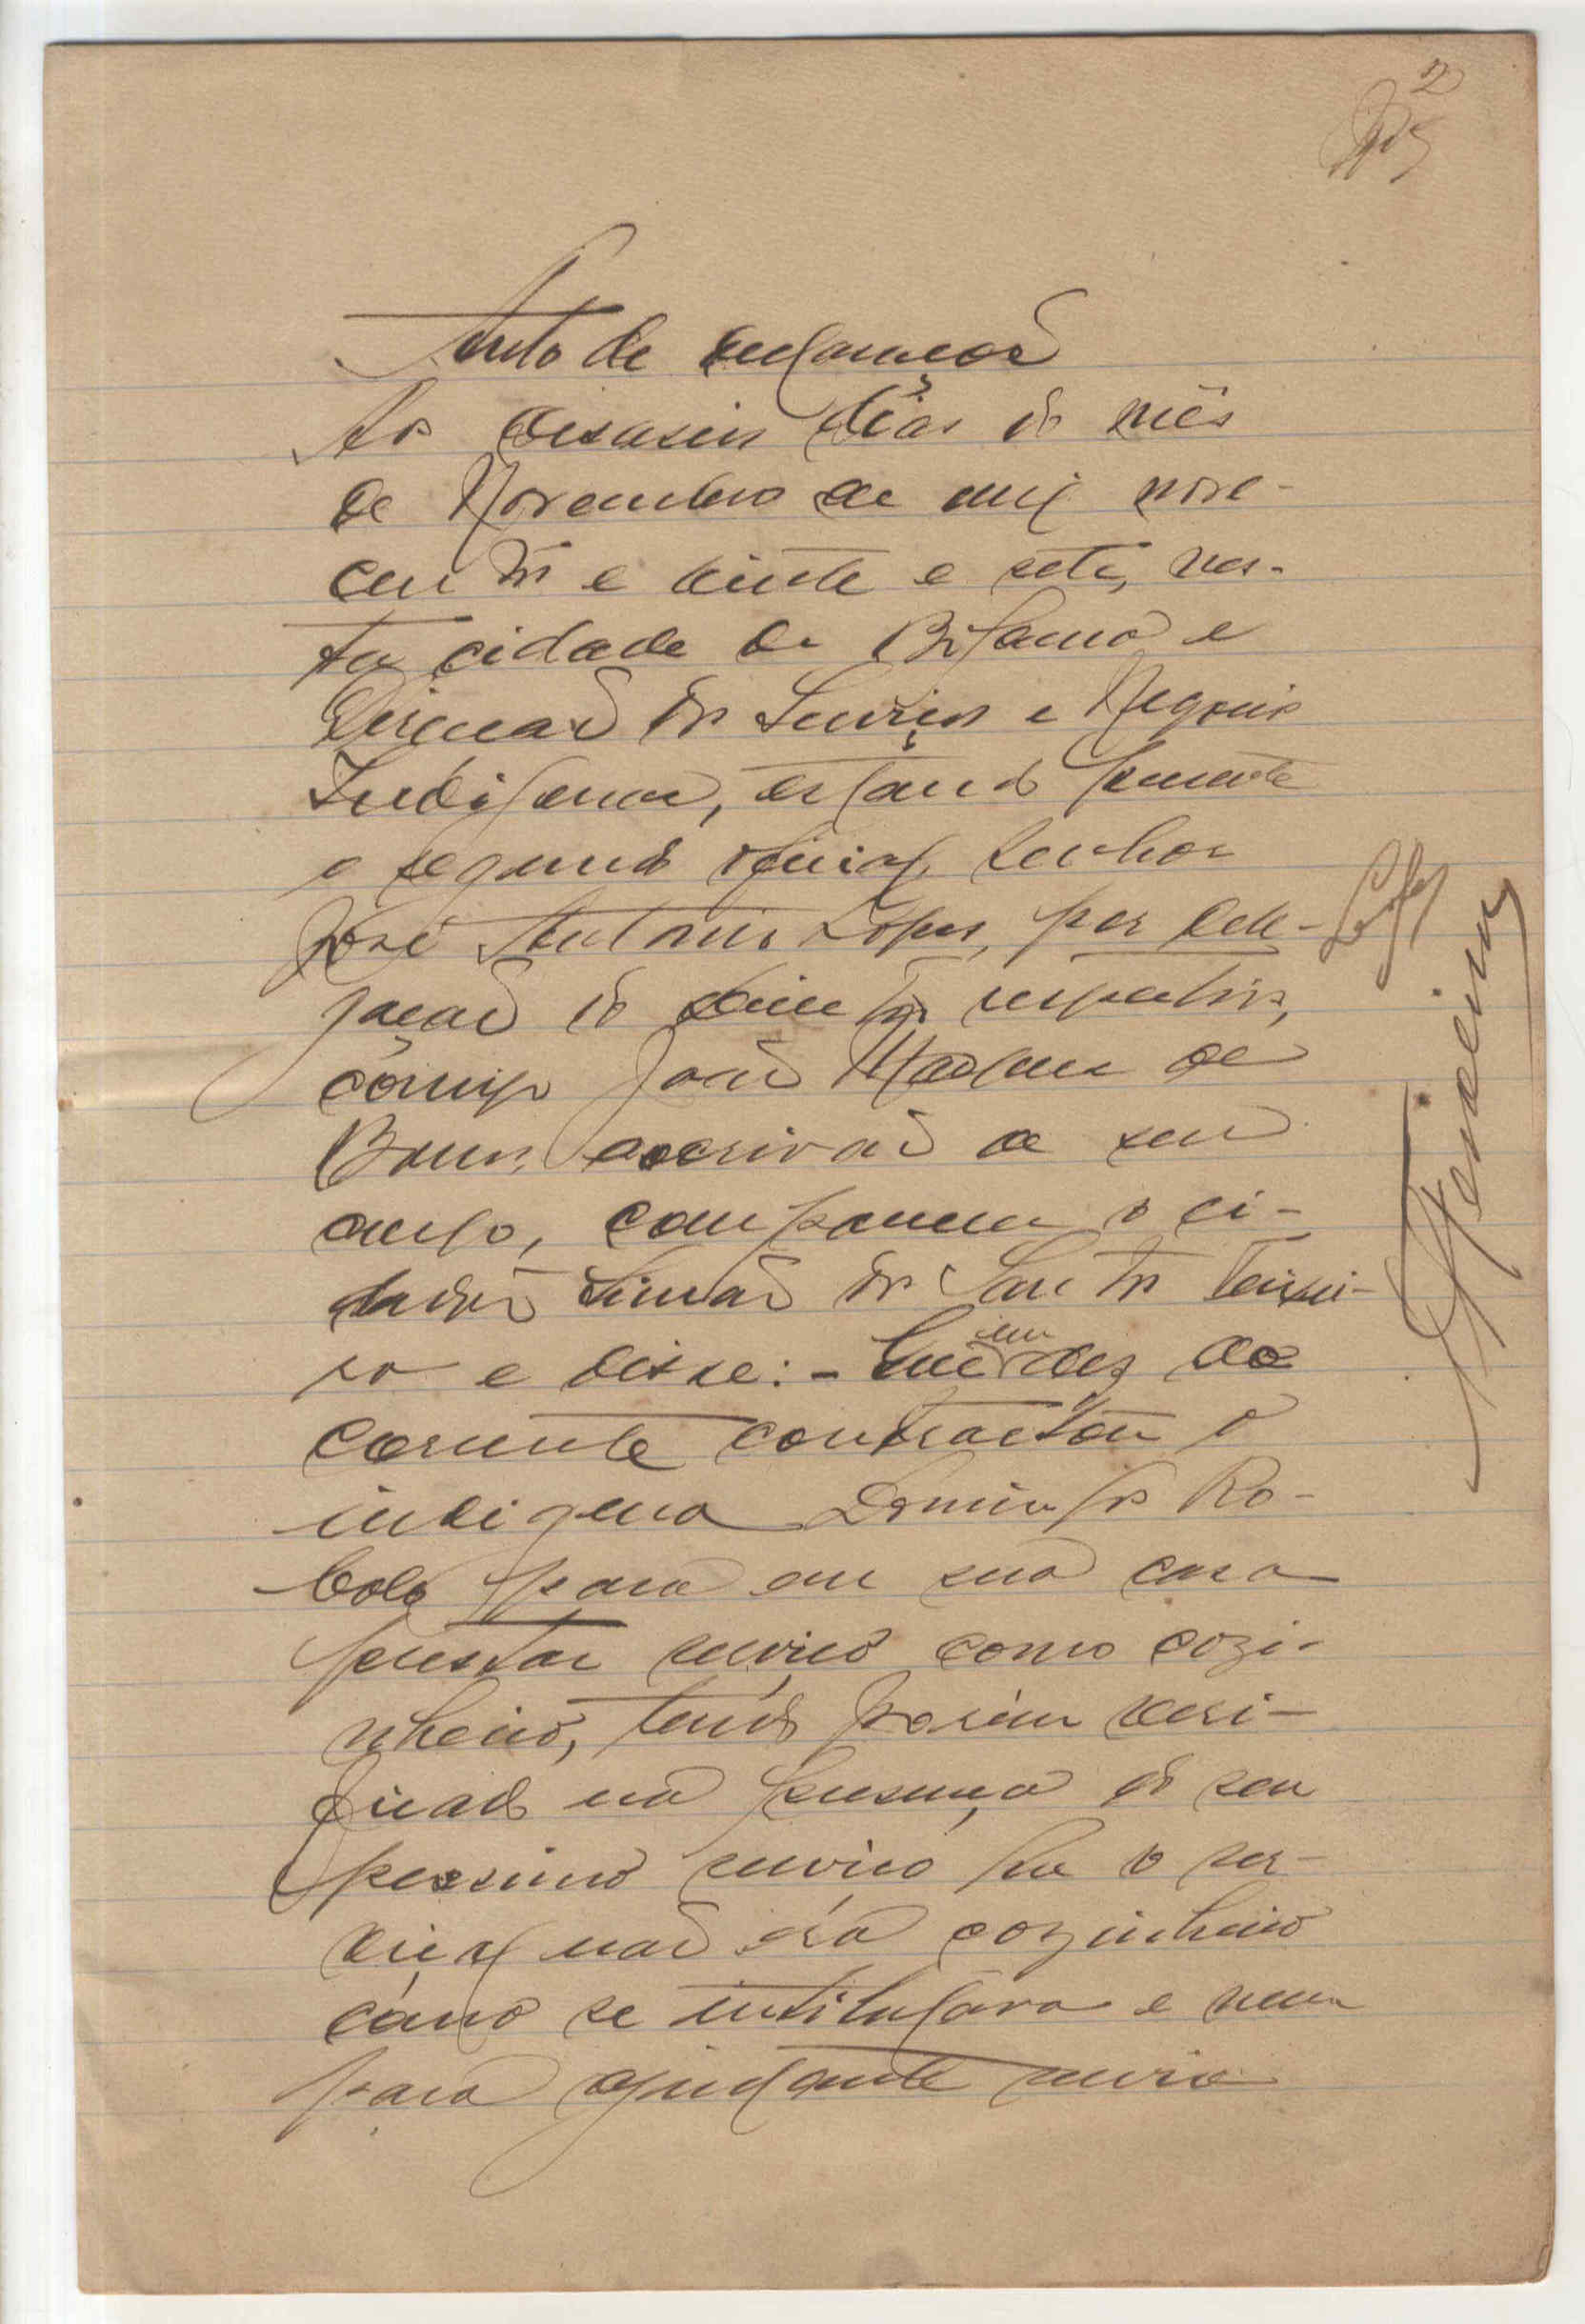 2
Auto de reclamação
Aos dezaseis dias do mês
de Novembro de mil nove-
centos e vinte e sete, nes-
ta cidade de Bolama e
Direcção dos Serviços e Negocios
Indigenas, estando presente
o segundo oficial, senhor
José Antonio Lopes, por dele-
gação do director respectivo,
comigo João de
Barros, escrivão de seu
cargo, compareceu o ci-
dadão Simão dos Santos Teixei-
ra e disse: - Que em dez do
corrente contractou o
indigena Domingos Ro-
bolo para em sua casa
prestar serviço como cozi-
nheiro, tendo porém veri-
ficado na presença do seu
pessimo serviço que o ser-
viçal não era cozinheiro
como se intitulára e nem
para ajudante servia
Lopes
Teixeira